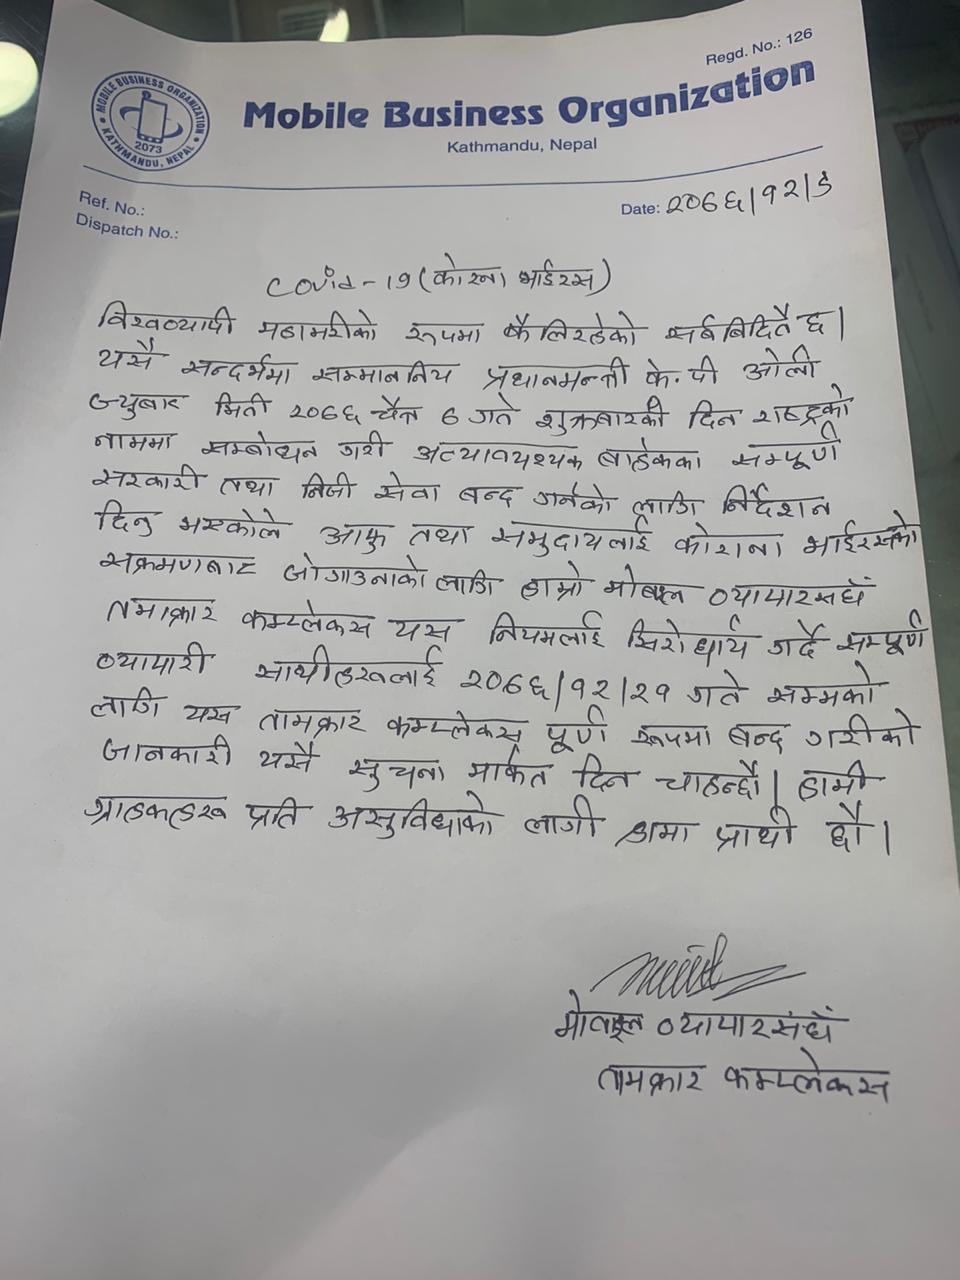 Regd. No.: 126
MOBILE BUSINESS ORGANIZATION
2073
KATHMANDU, NEPAL
Mobile Business Organization
Kathmandu, Nepal
Ref. No.:
Dispatch No.:
Date: २०७६/१२/८
Covid-19 (कोरना भाईरस)
विश्वव्यापी महामरीको रूपमा फैलिरहेको सर्बबिदितै छ।
यसै सन्दर्भमा सम्माननिय प्रधानमन्त्री के.पी ओली
ज्युबाट मिती २०७६ चैत्र ७ गते शुक्रबारको दिन राष्ट्रको
नाममा सम्बोधन गरी अत्यावयश्यक बाहेकका सम्पूर्ण
सरकारी तथा निजी सेवा बन्द गर्नको लागि निर्देशन
दिनु भएकोले आफु तथा समुदायलाई कोराना भाईरसको
सक्रमणबाट जोगाउनाको लागि हाम्रो मोबाइल व्यापारसंघ
तमाक्रार कम्प्लेकस यस नियमलाई सिरोधार्य गर्दै सम्पूर्ण
व्यापारी साथीहरूलाई २०७६/१२/२१ गते सम्मको
लागि यस तामक्रार कम्प्लेकस पूर्ण रूपमा बन्द गरीको
जानकारी यसै सुचना मार्फत दिन चाहन्छौ। हामी
ग्राहकहरू प्रति असुविधाको लागी क्षमा प्रार्थी छौ।
मोबाइल व्यापारसंघ
तामक्रार कम्प्लेकस